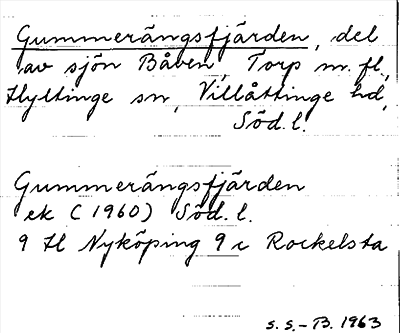 Gummerängsfjärden, del
av sjön Båven, Torp m. fl.,
Hyltinge sn, Villåttinge hd,
Söd. l.
Gummerängsfjärden
ek (1960) Söd. l.
9 H Nyköping 9 c Rockelsta
S. S. – B. 1963